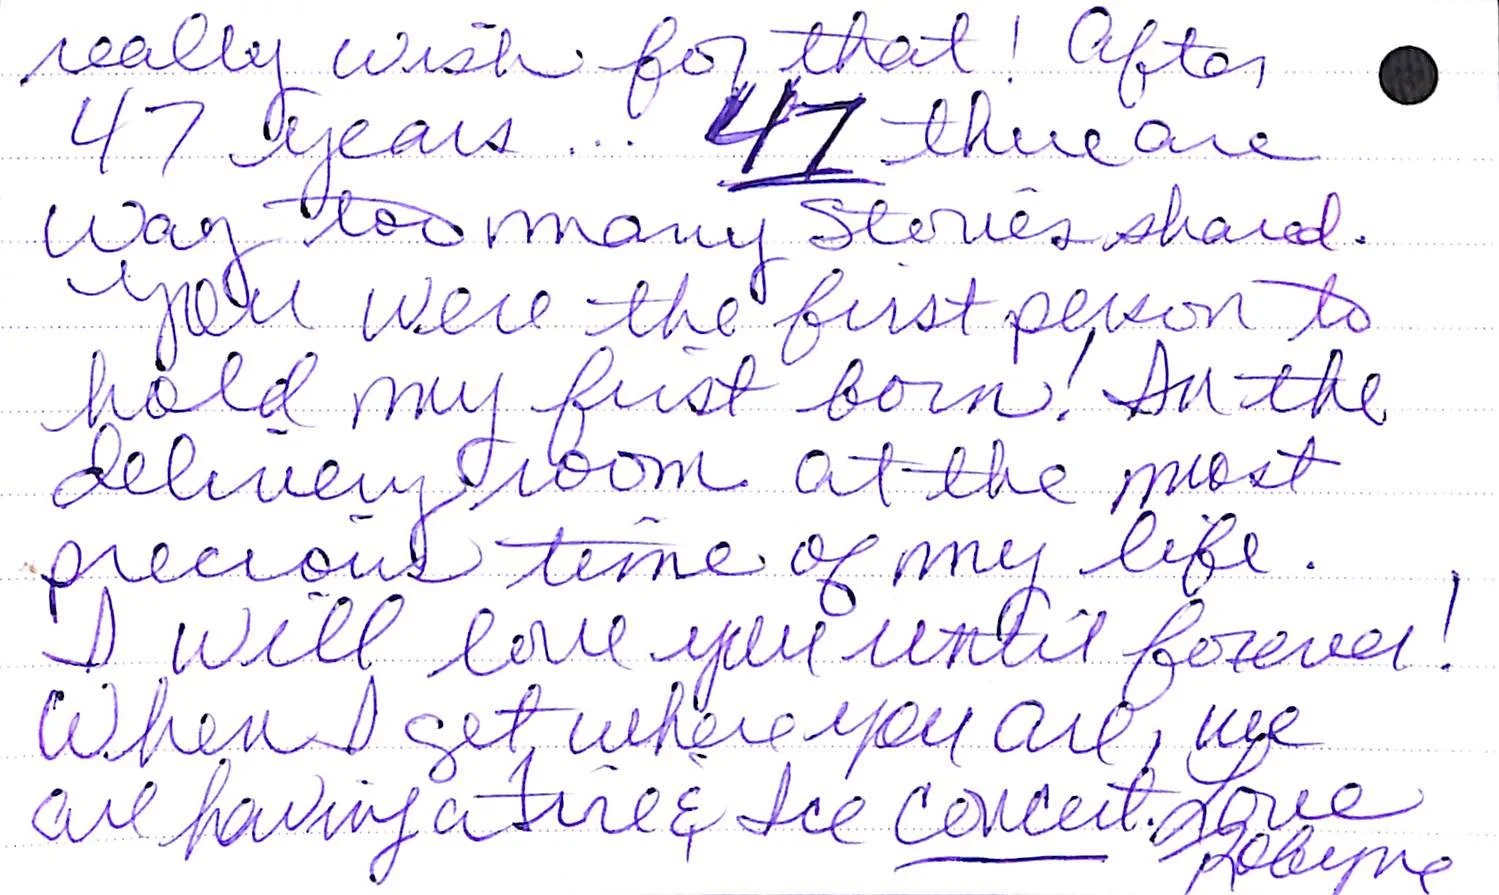 really wish for that! After
47 years ... 47 there are
way too many stories shared.
You were the first person to
hold my first born! In the
delivery room at the most
precious time of my life.
I will love you until forever!
When I get where you are, we
are having a Fire & Ice concert. Love
Robyne